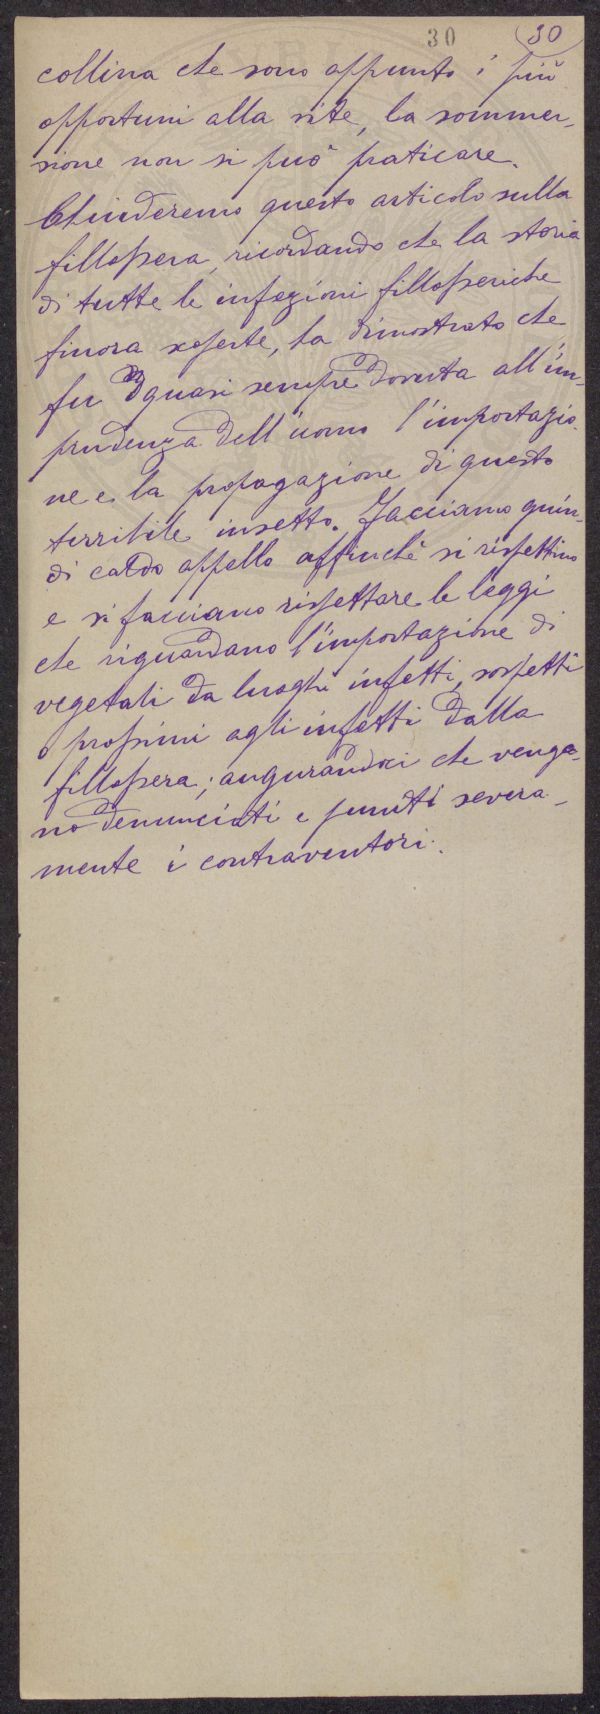 30 30
collina che sono appunto i più
opportuni alla vite, la sommer-
sione non si può praticare.
Chiuderemo questo articolo sulla
fillossera, ricordando che la storia
di tutte le infezioni fillosseriche
finora scoperte, ha dimostrato che
fu quasi sempre dovuta all'im-
prudenza dell'uomo l'importazio-
ne e la propagazione di questo
terribile insetto. Facciamo quin-
di caldo appello affinchè si rispettino
e si facciano rispettare le leggi
che riguardano l'importazione di
vegetali da luoghi infetti, sospetti
o prossimi agli infetti dalla
fillossera; augurandoci che venga-
no denunciati e puniti severa-
mente i contraventori.